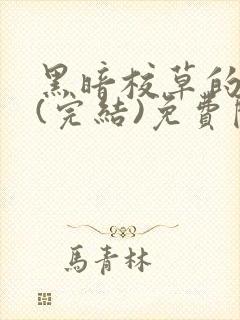 黑暗校草的
(完結)免費
馬青林